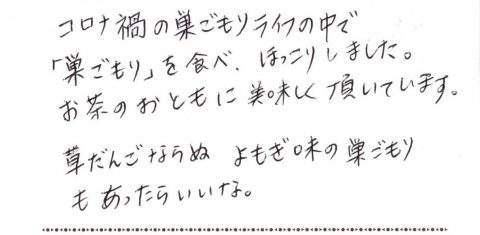 コロナ禍の巣ごもりライフの中で
「巣ごもり」を食べ、ほっこりしました。
お茶のおともに美味しく頂いています。
草だんごならぬ よもぎ味の巣ごもり
もあったらいいな。